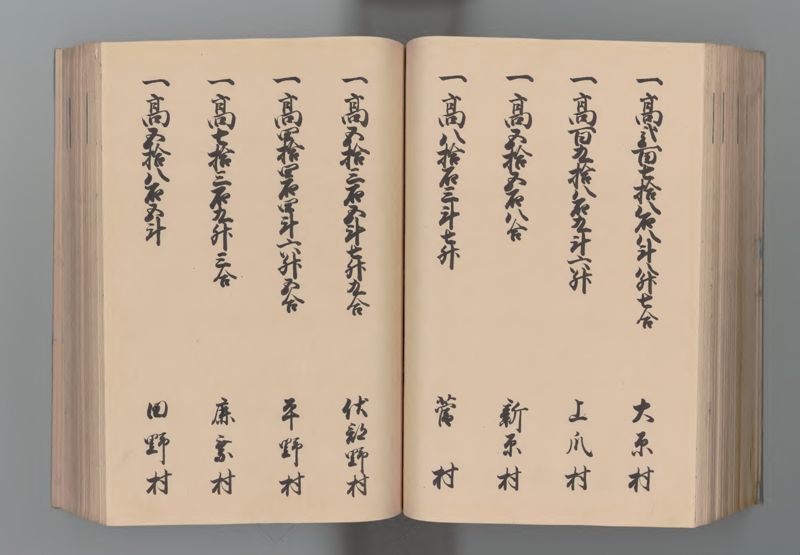 一高弐百七拾八石八斗八升七合 大原村
一高百九拾八石九斗六升 上爪村
一高五拾五石八合 新原村
一高八拾石三斗七升 菅村
一高五拾三石五斗七升九合 伏部野村
一高四拾四石四斗六升五合 平野村
一高七拾三石九升三合 村
一高五拾八石五斗 田野村